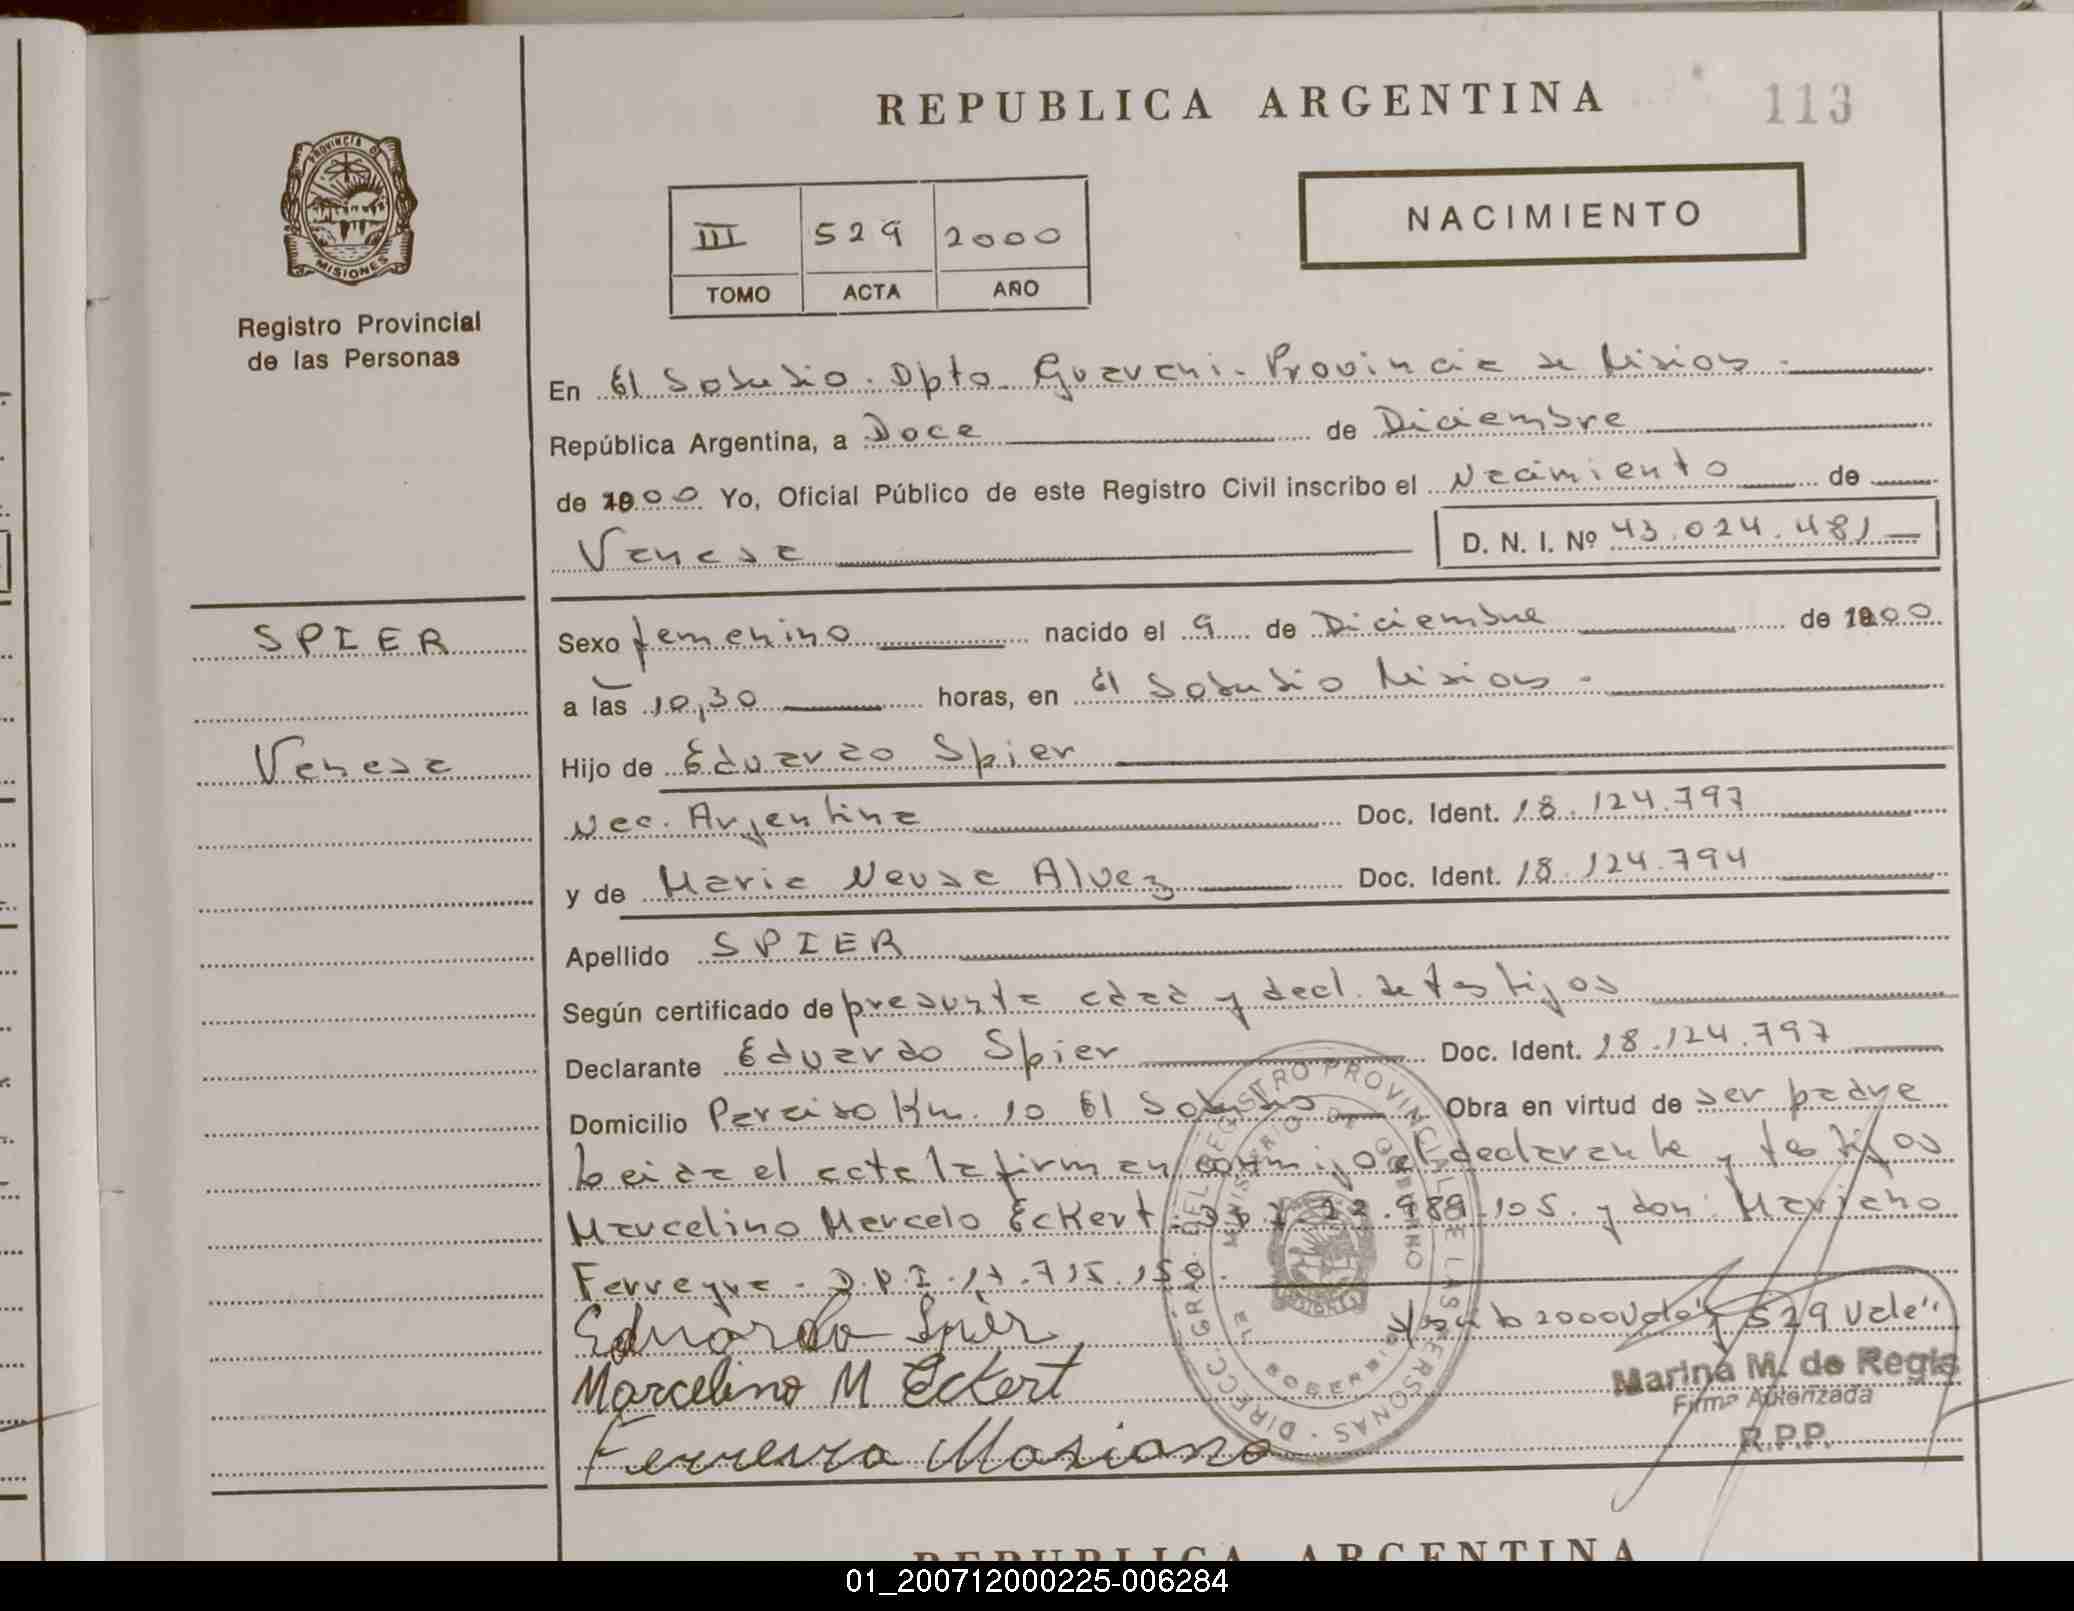 REPUBLICA ARGENTINA
113
PROVINCIA DE
MISIONES
Registro Provincial
de las Personas
III 529 2000
TOMO ACTA AÑO
NACIMIENTO
En El Soberbio. Dpto Guarani. Provincia de Misiones.
República Argentina, a Doce de Diciembre
de 2000 Yo, Oficial Público de este Registro Civil inscribo el Nacimiento de
Vanesa D. N. I. Nº 43.024.481
SPIER
Vanesa
Sexo femenino nacido el 9 de Diciembre de 2000
a las 10,30 horas, en El Soberbio Misiones.
Hijo de Eduardo Spier
Nac. Argentina Doc. Ident. 18.124.797
y de Maria Neusa Alvez Doc. Ident. 18.124.794
Apellido SPIER
Según certificado de presunta edad y decl. de testigos
Declarante Eduardo Spier Doc. Ident. 18.124.797
Domicilio Paraiso Km. 10 El Soberbio Obra en virtud de ser padre
Leida el acta la firman conmigo el declarante y testigos
Marcelino Marcelo Eckert. 22.989.105. y don: Mariano
Ferreyra. D.N.I. 17.715.150.
2000 Vale y 529 Vale
Eduardo Spier
Marcelino M Eckert
Ferreira Mariano
DIRECC. GRAL. DEL REGISTRO PROVINCIAL DE LAS PERSONAS
MINISTERIO DE GOBIERNO
EL SOBERBIO
Marina M. de Regis
Firma Autorizada
R.P.P.
REPUBLICA ARGENTINA
01_200712000225-006284